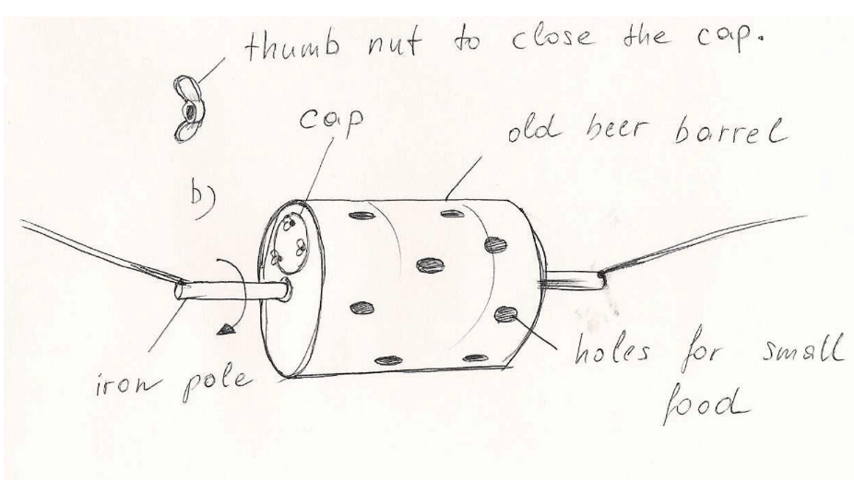 thumb nut to close the cap.
cap
old beer barrel
b)
iron pole
holes for small
food